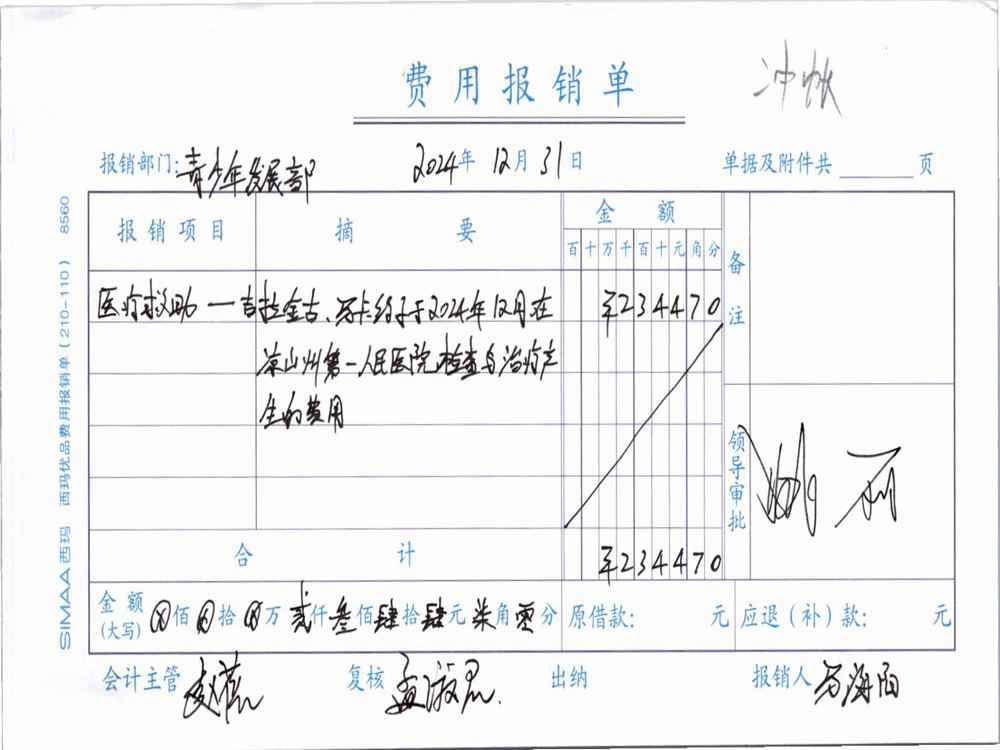 费用报销单
冲账
报销部门:青少年发展部 2024年 12月 31日 单据及附件共 页
报销项目 摘要 金额 备注
百十万千百十元角分
医疗救助 一吉拉金古、马卡约子于2024年12月在 ¥234470
凉山州第一人民医院检查与治疗产
生的费用
领导审批 姚丽
合计 ¥234470
金额(大写) ⊗佰⊗拾⊗万贰仟叁佰肆拾肆元柒角零分 原借款: 元 应退(补)款: 元
会计主管 赵 复核 孟淑君 出纳 报销人 马海阳
SIMAA西玛 西玛优品费用报销单(210-110) 8560